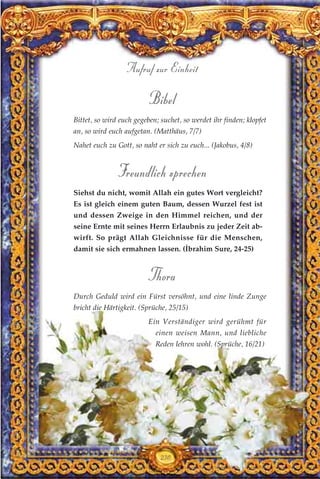 Aufruf zur Einheit
Bibel
Bittet, so wird euch gegeben; suchet, so werdet ihr finden; klopfet
an, so wird euch aufgetan. (Matthäus, 7/7)
Nahet euch zu Gott, so naht er sich zu euch... (Jakobus, 4/8)
Freundlich sprechen
Siehst du nicht, womit Allah ein gutes Wort vergleicht?
Es ist gleich einem guten Baum, dessen Wurzel fest ist
und dessen Zweige in den Himmel reichen, und der
seine Ernte mit seines Herrn Erlaubnis zu jeder Zeit ab-
wirft. So prägt Allah Gleichnisse für die Menschen,
damit sie sich ermahnen lassen. (İbrahim Sure, 24-25)
Thora
Durch Geduld wird ein Fürst versöhnt, und eine linde Zunge
bricht die Härtigkeit. (Sprüche, 25/15)
Ein Verständiger wird gerühmt für
einen weisen Mann, und liebliche
Reden lehren wohl. (Sprüche, 16/21)
236